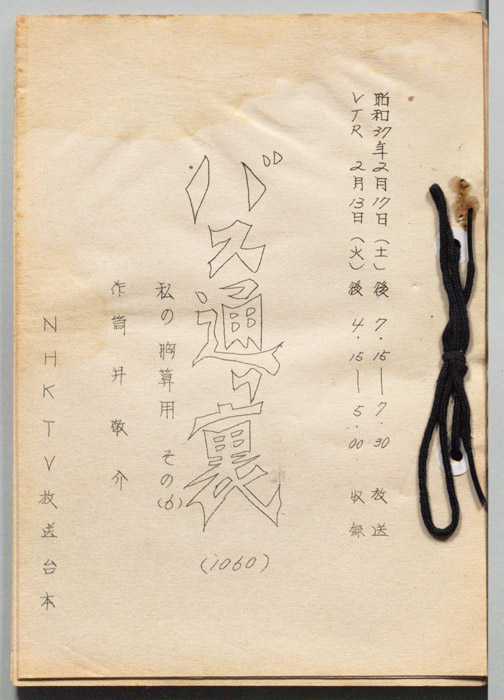 昭和37年2月17日（土）後 7.15－7.30 放送
VTR 2月13日（火）後 4.15－5.00 収録
バス通り裏
(1060)
私の胸算用 その(6)
作 筒井敬介
NHKTV放送台本